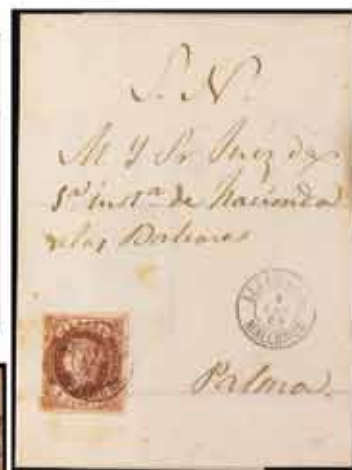 S. N.
M Y Sr Juez de
1ª inst.ª de Hacienda
de las Baleares
MALLORCA
Palma.